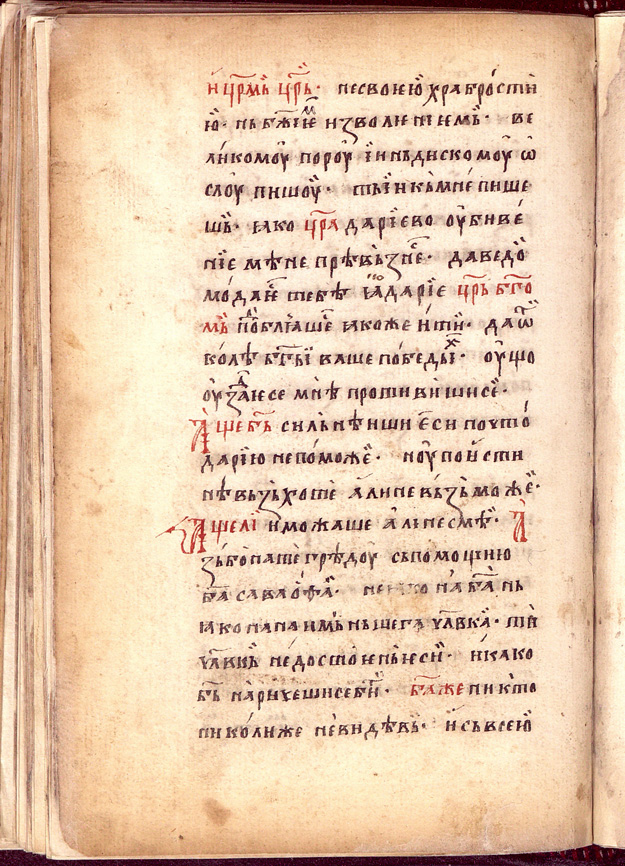 и҆ цр҃мь цр҃ь · не своею҆ храбро́сти
ю҆ · нь бж҃їе҆ⷨ и҆зволенїемь · ве
ли́комоу̑ пороу̑ ї и҆ндѣскомоу̑ ѡ҆
слоу̑ пишоу̑ · ты и҆ к мнѣ пише
шь · ꙗко цр҃а дарїево оу̑биве́
нїе мѣне прѣвьзне · да ведо
мо́ да е҆ тебѣ ꙗ҆ дарїе цр҃ь бг҃о
мь поⷣблїаше ꙗкоже и҆ ти · да ѿ
колѣ бг҃ы ваше победыⷯ ·
оузⷣаю се мнѣ противиши се ·
А҆ще бг҃ь сильнѣиши е҆си по что́
дарїю не поможе · 
не вьзьхоте а҆ли не вьзьможе ·
А҆ще ли и҆ можаше а҆ль не сме · А҆
зь бо наше гредоу сь помощїю
ба҃ саваѡ҆ѳа · не ꙗко на ба҃ нь
ꙗко на нашега чл҃вка · ти
чл҃вкь недосто́инь е҆си · и҆ како
бг҃ь нарычеши се би · ба҃ же никто
николиже не видѣвь · и҆ сь всею҆